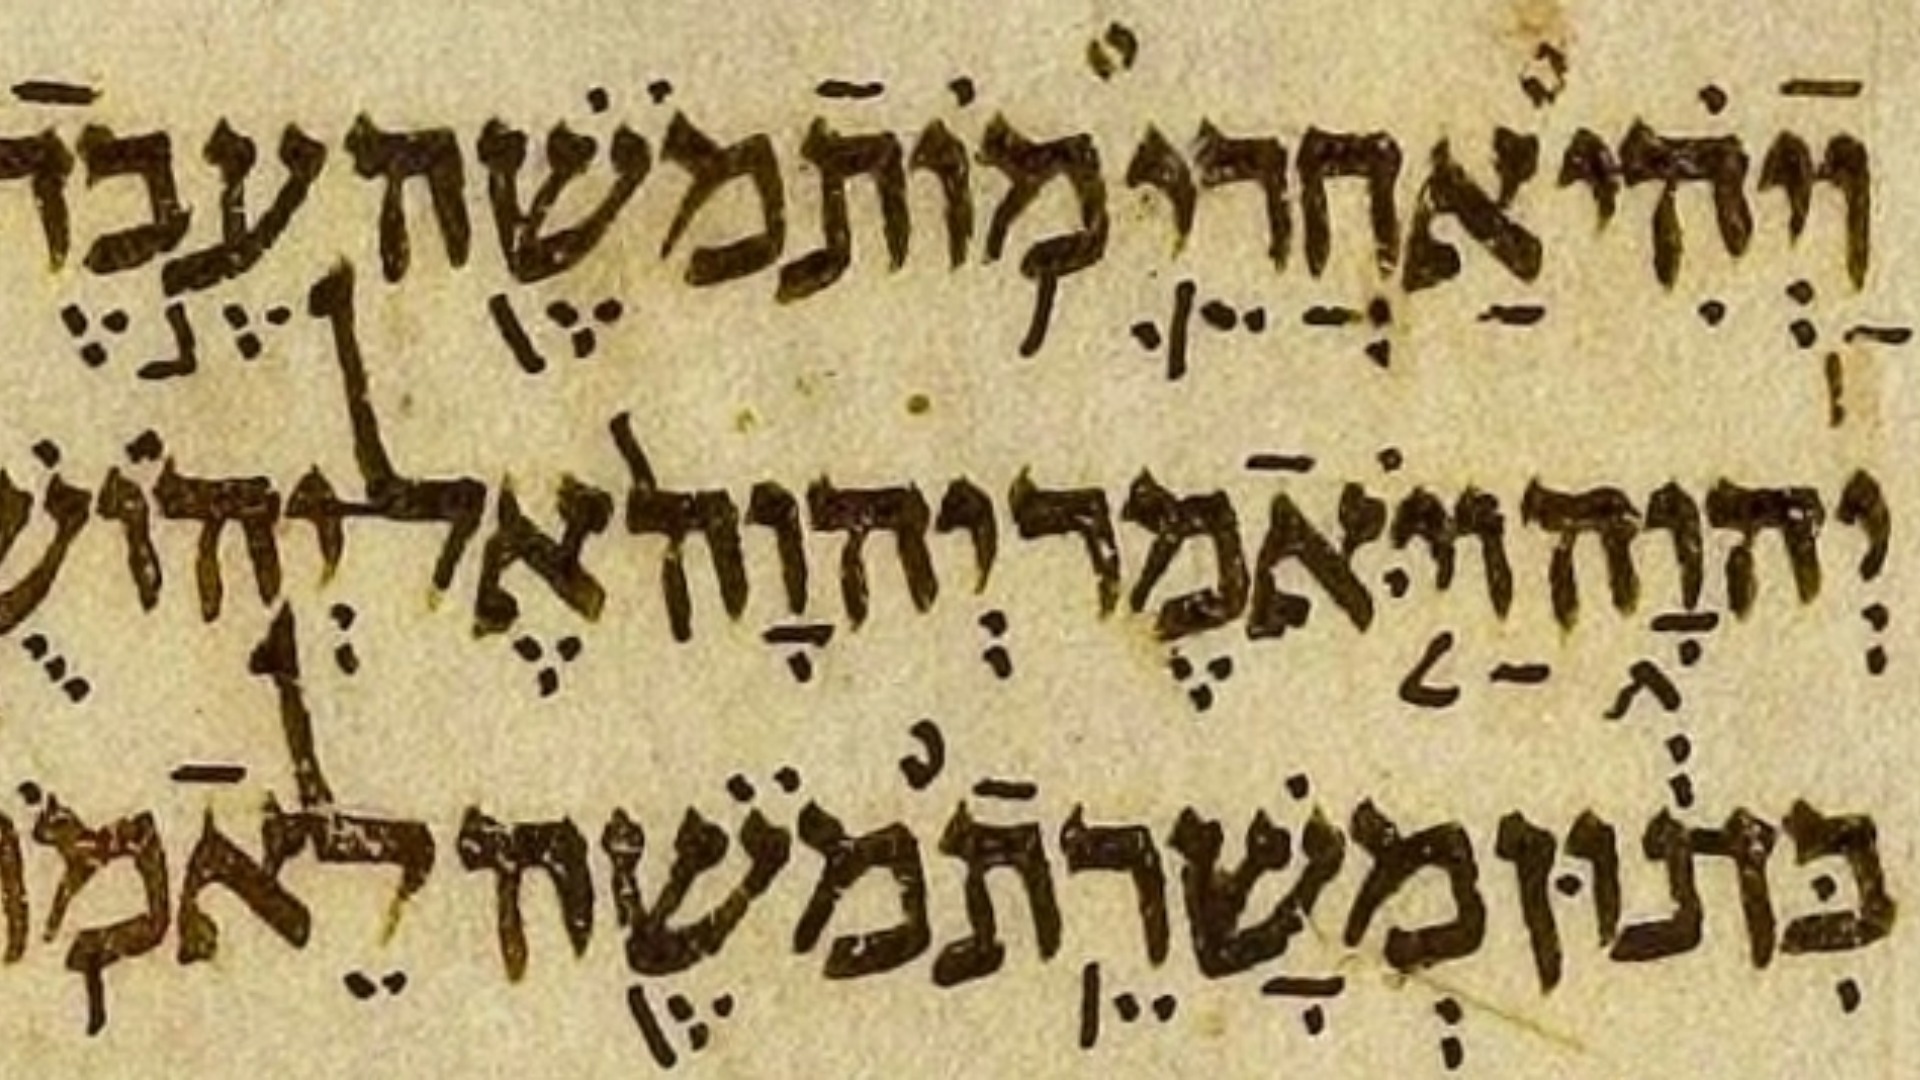 וַיְהִ֗י אַחֲרֵ֛י מ֥וֹת מֹשֶׁ֖ה עֶ֣בֶד
יְהוָ֑ה וַיֹּ֤אמֶר יְהוָה֙ אֶל יְהוֹשֻׁ
בִּן נ֔וּן מְשָׁרֵ֥ת מֹשֶׁ֖ה לֵאמֹֽר